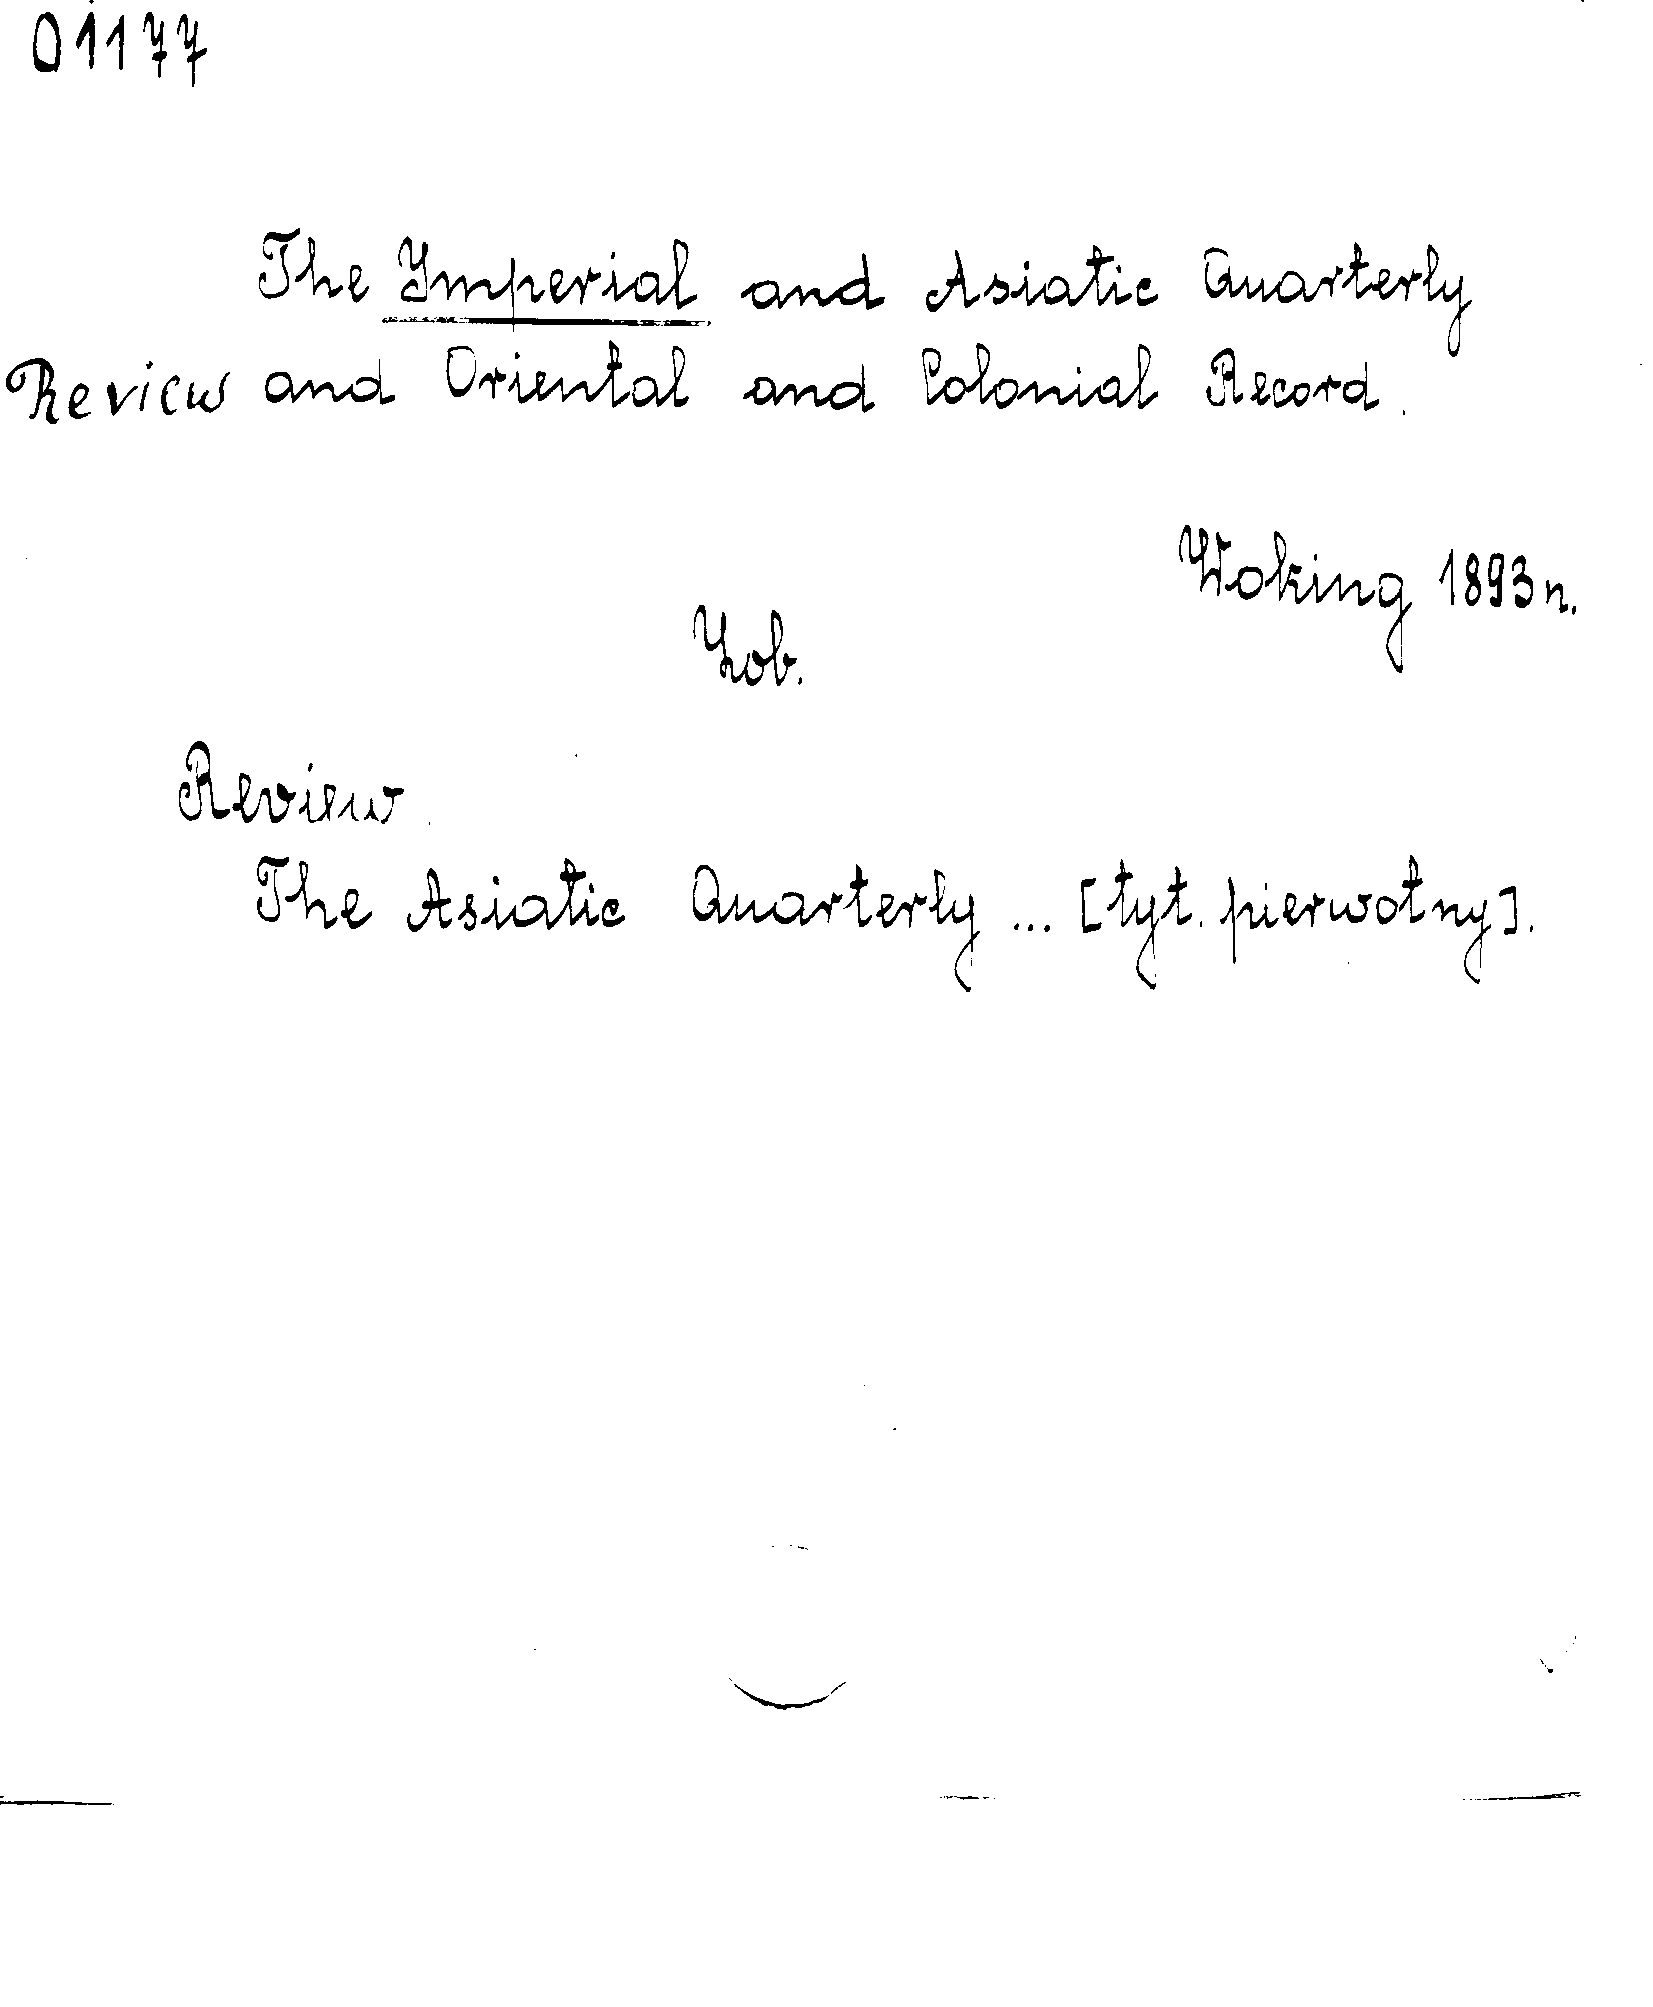 01177
The Imperial and Asiatic Quarterly
Review and Oriental and Colonial Record.
Woking 1893 n.
Zob.
Review.
The Asiatic Quarterly ... [tyt. pierwotny].